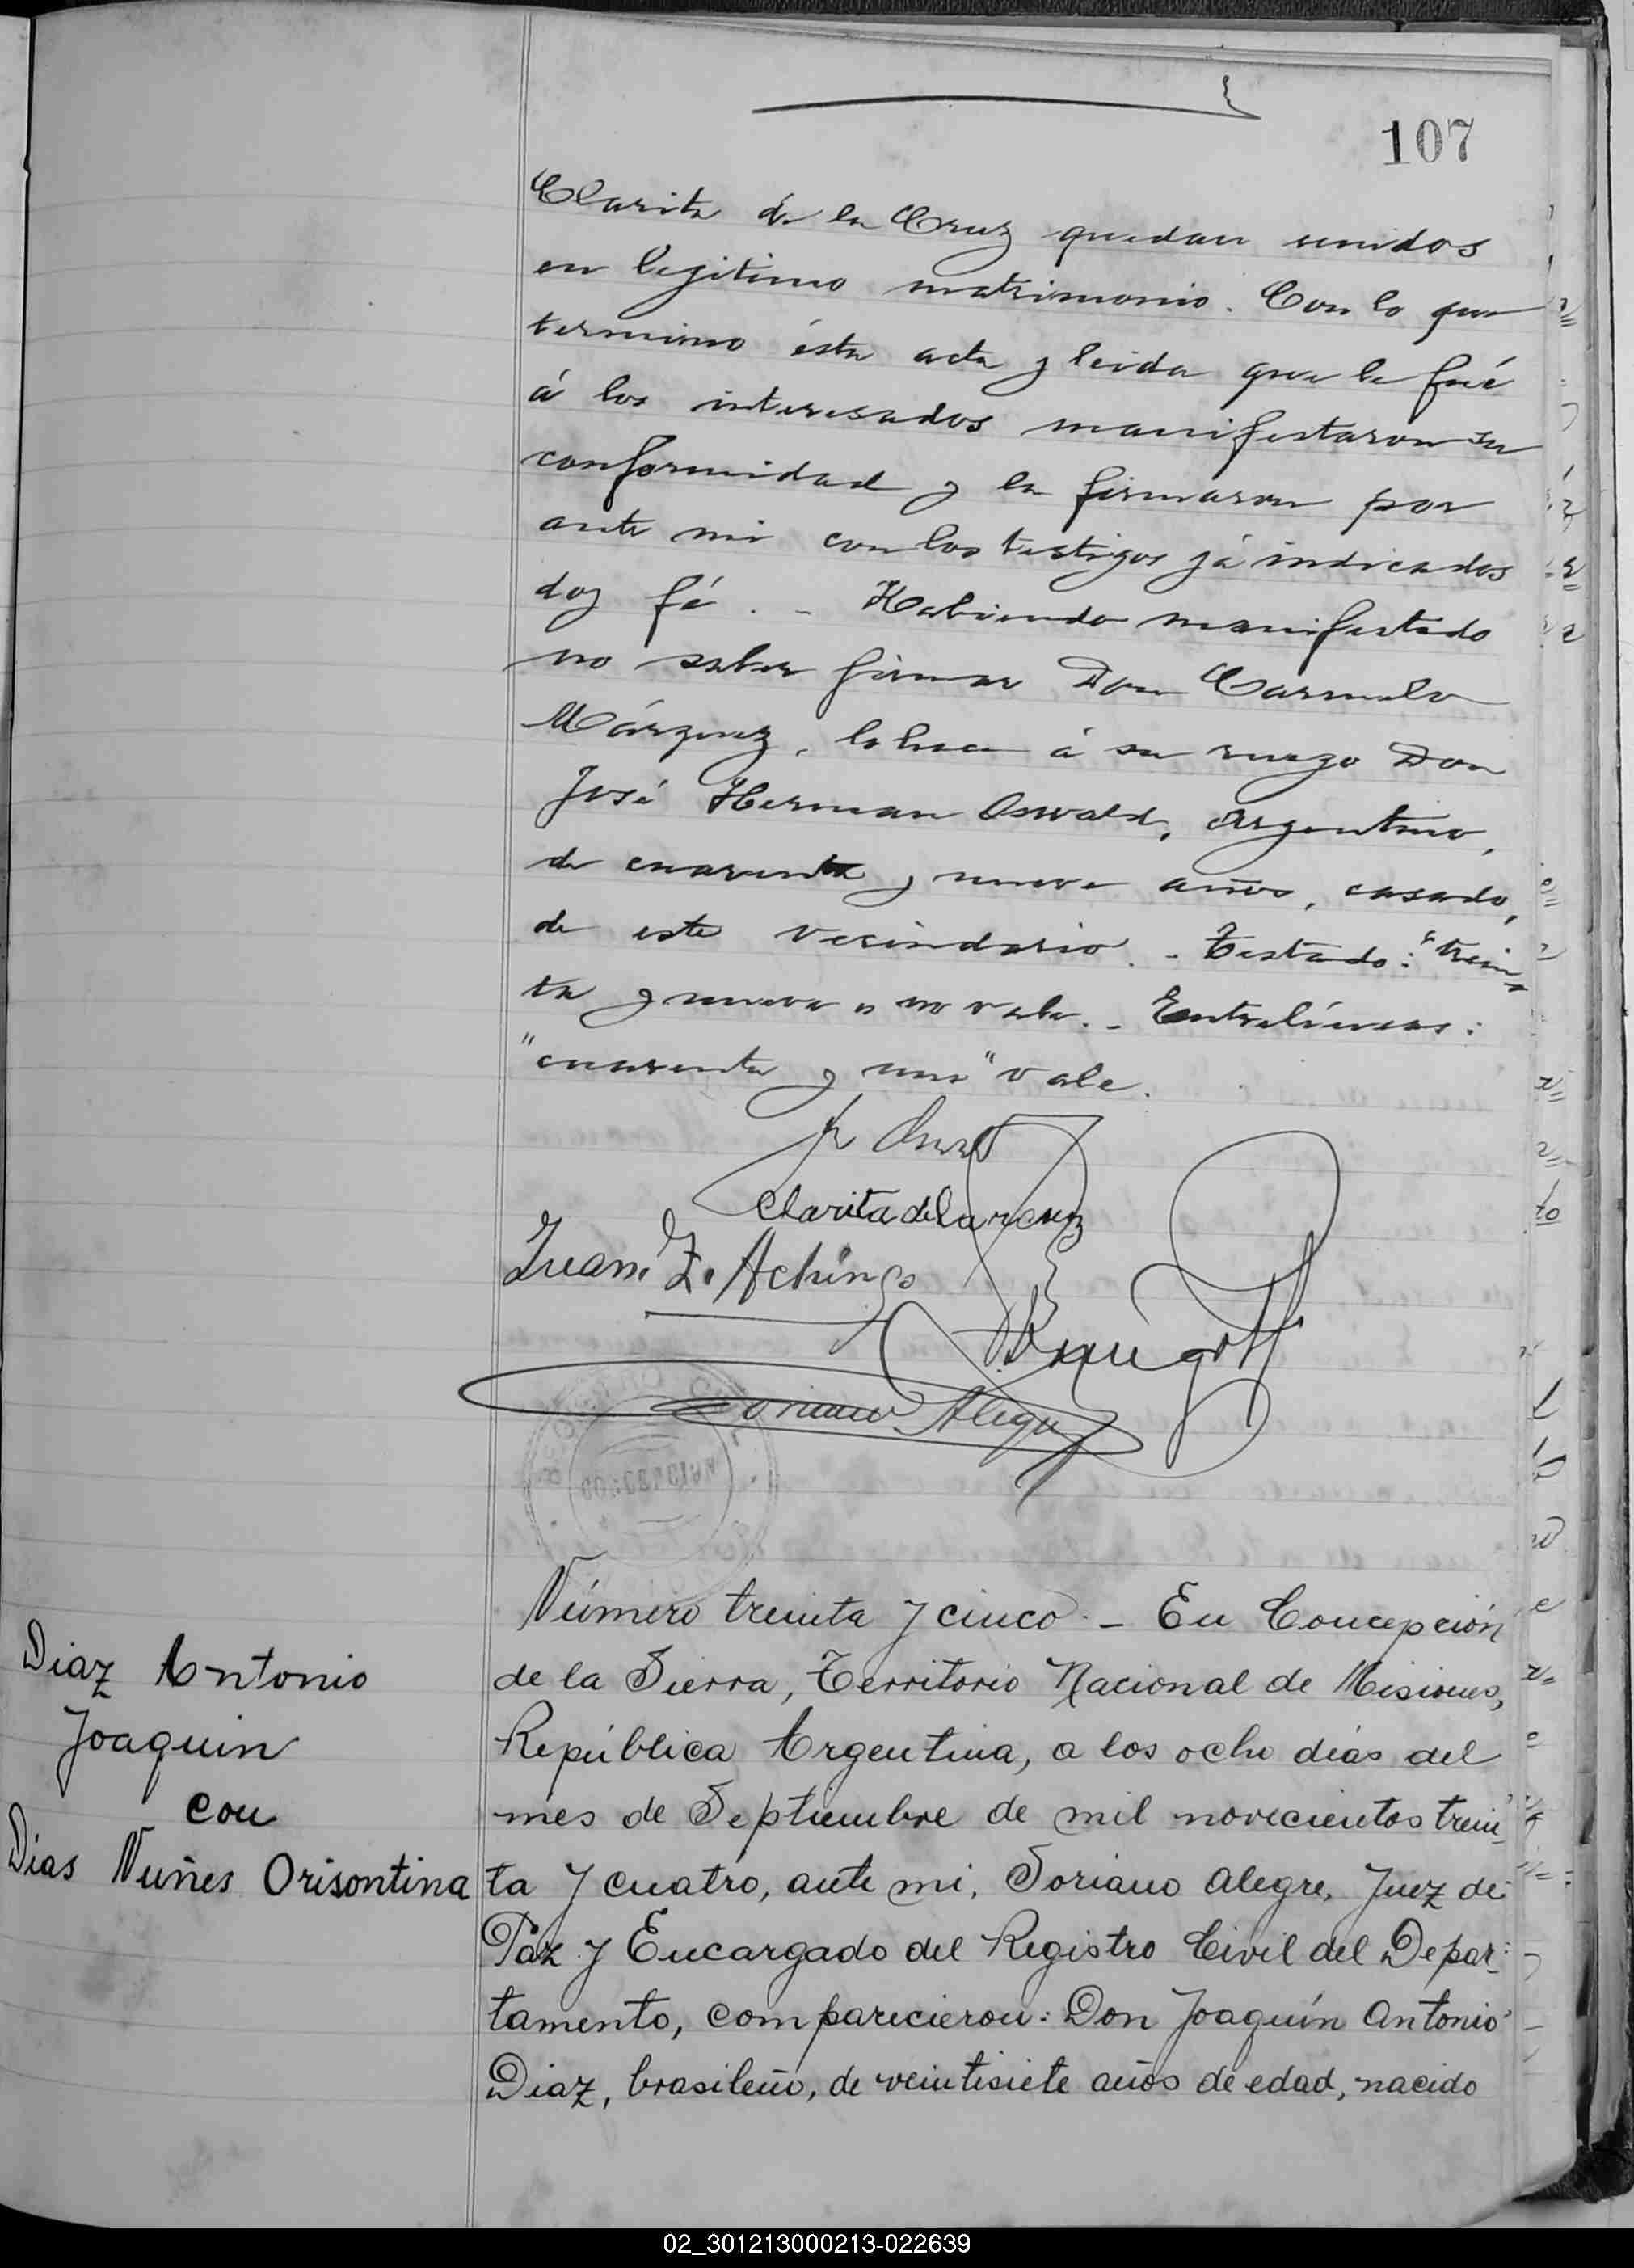 107
Clarita de la Cruz quedan unidos
en legitimo matrimonio. Con lo que
termino ésta acta y leida que le fué
á los interesados manifestaron su
conformidad y la firmaron por
ante mi con los testigos já indicados
doy fé. - Habiendo manifestado
no saber firmar Don Carmelo
Márquez, lo hace á su ruego Don
José Herman Oswald, Argentino,
de cuarenta y nueve años, casado,
de este vecindario. - Testado: "trein
ta y nueve" no vale. - Entrelíneas:
"cuarenta y uno" vale.
Clarita de la rcruz
Juan. Z.
Soriano Alegre
Número treinta y cinco. - En Concepción
de la Sierra, Territorio Nacional de Misiones,
República Argentina, a los ocho días del
mes de Septiembre de mil novecientos trein-
ta y cuatro, ante mi, Soriano Alegre, Juez de
Paz y Encargado del Registro Civil del Depar-
tamento, comparecieron: Don Joaquín Antonio
Diaz, brasileño, de veintisiete años de edad, nacido
Diaz Antonio
Joaquin
con
Dias Nuñes Orisontina
02_301213000213-022639